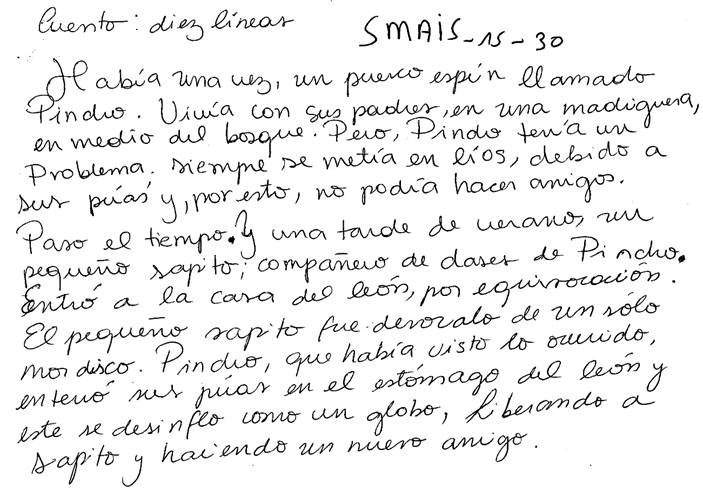 Cuento: diez líneas
SMAIS-15-30
Había una vez, un puerco espín llamado
Pincho. Vivía con sus padres, en una madriguera,
en medio del bosque. Pero, Pincho tenía un
Problema. siempre se metía en líos, debido a
sus púas y, por esto, no podía hacer amigos.
Paso el tiempo. Y una tarde de verano, un
pequeño sapito; compañero de clases de Pincho.
Entró a la casa del león, por equivocación.
El pequeño sapito fue devorado de un sólo
mordisco. Pincho, que había visto lo ocurrido,
enterró sus púas en el estómago del león y
este se desinflo como un globo, liberando a
sapito y haciendo un nuevo amigo.